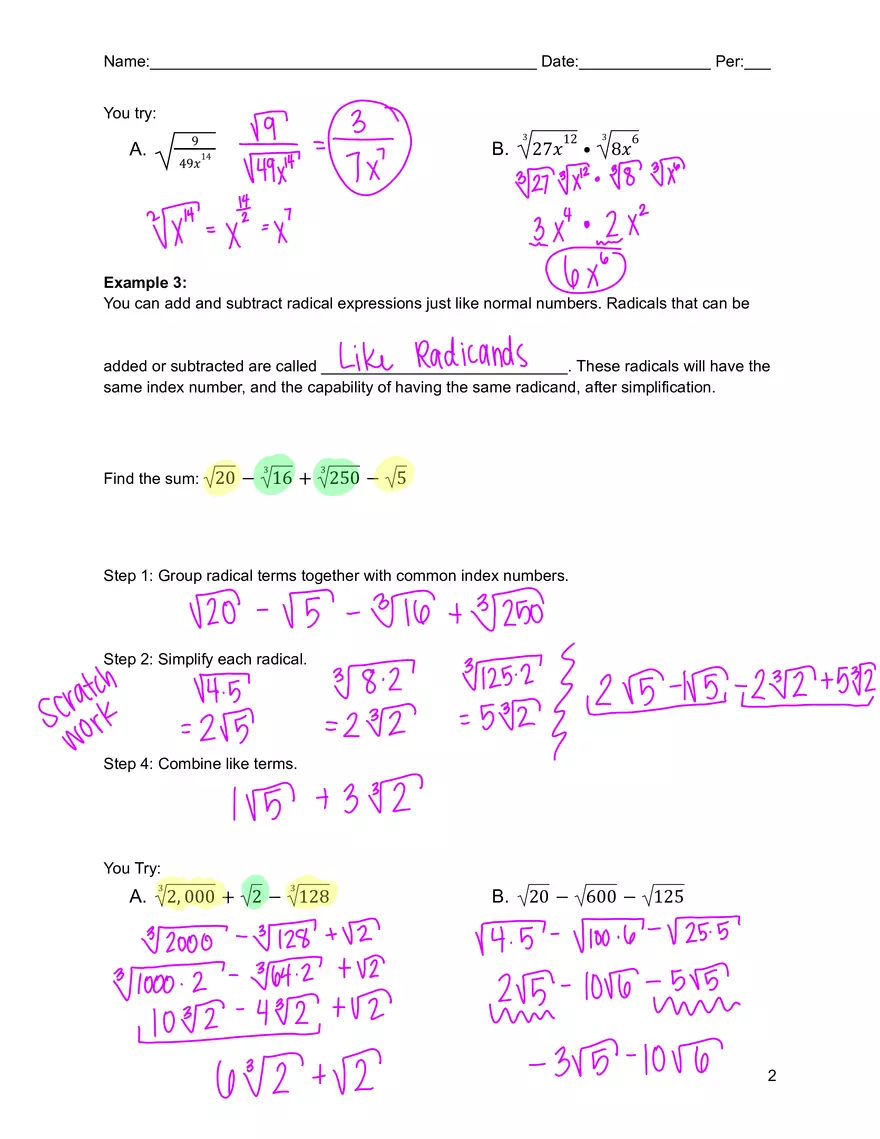 Name:____________________________________________ Date:_______________ Per:___
You try:
A. √(9/49x¹⁴) √9/√49x¹⁴ = 3/7x⁷
B. ∛27x¹² • ∛8x⁶
∛27 ∛x¹² • ∛8 ∛x⁶
²√x¹⁴ = x^(14/2) = x⁷
3x⁴ • 2x²
6x⁶
Example 3:
You can add and subtract radical expressions just like normal numbers. Radicals that can be
added or subtracted are called Like Radicands. These radicals will have the
same index number, and the capability of having the same radicand, after simplification.
Find the sum: √20 − ∛16 + ∛250 − √5
Step 1: Group radical terms together with common index numbers.
√20 - √5 - ∛16 + ∛250
Step 2: Simplify each radical.
scratch work
√4·5 ∛8·2 ∛125·2
= 2√5 = 2∛2 = 5∛2
2√5 - 1√5 - 2∛2 + 5∛2
Step 4: Combine like terms.
1√5 + 3∛2
You Try:
A. ∛2,000 + √2 − ∛128
∛2000 - ∛128 + √2
∛1000·2 - ∛64·2 + √2
10∛2 - 4∛2 + √2
6∛2 + √2
B. √20 − √600 − √125
√4·5 - √100·6 - √25·5
2√5 - 10√6 - 5√5
-3√5 - 10√6
2